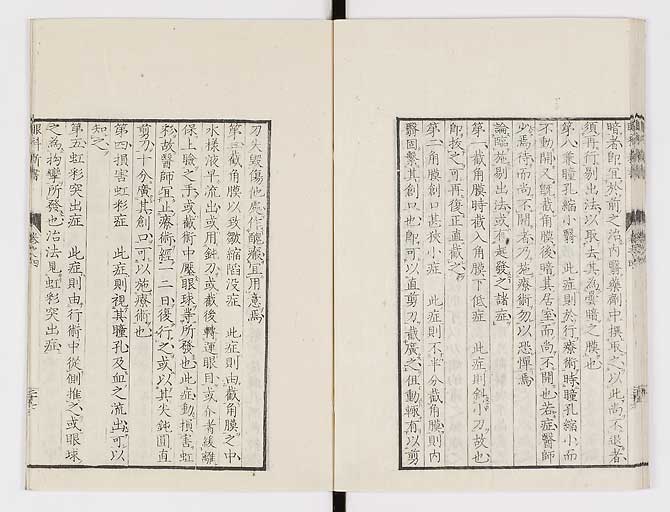 暗者、即宜於前之治內醫藥劑中撰取之、以此尚不退者、
須再行剔出法、以取去其為雲曀之膜也、
第八兼瞳孔縮小醫 此症則於行療術時、瞳孔縮小、而
不動開、又既截角膜後、暗其居室而尚不開也、若症醫師
少焉待而尚不開者、乃施療術勿以恐憚焉、
論臨施剔出法、或有起發之諸症、
第一截角膜時截入角膜下低症 此症則斜小刀故也、
即拔之、可再復正直截之、
第二角膜創口甚狹小症 此症則不半分截角膜、則內
醫固繫其創口也、即可以直剪刀截廣之、但動輒有以剪
刀失毀傷他處、作醜瘢、宜用意焉、
第三截角膜以致皺縮陷沒症 此症則由截角膜之中、
水樣液平流出、或用鈍刀、或截後轉運眼目、或介者緩離
保上瞼之手、或截術中壓眼球等所發也、此症動損害虹
彩、故醫師宜止療術、經一二日後行之、或以其失鈍圓直
剪刀、十分廣其創口、可以施療術也、
第四損害虹彩症 此症則視其瞳孔及血之流出、可以
知之、
第五虹彩突出症 此症則由行術中從側推之、或眼球
之為拘攣所發也、治法見虹彩突出症、
眼科新書
卷之四